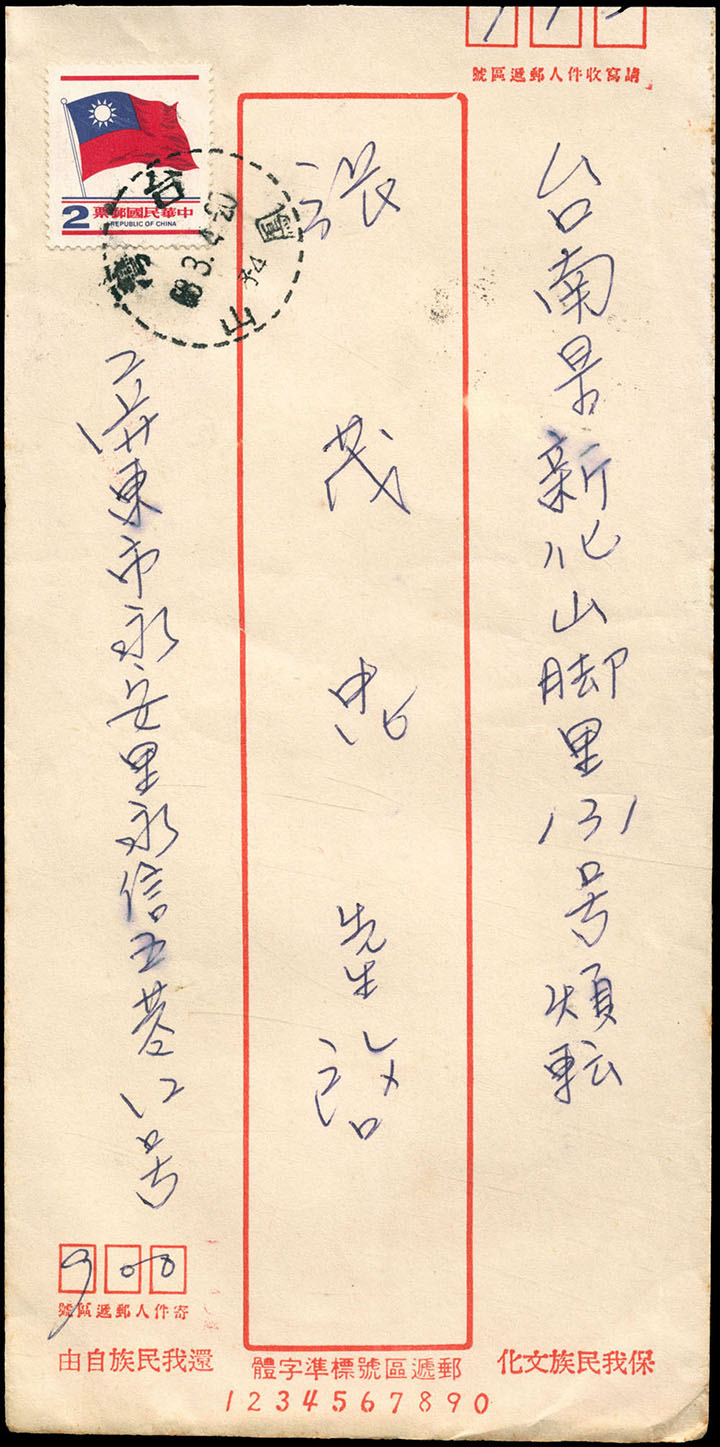 號區遞郵人件收寫請
台南县新化山脚里131号煩転
張茂忠先生啟
2 票郵國民華中
REPUBLIC OF CHINA
68.3.4-20
屏東市永安里永信五巷12号
900
號區遞郵人件寄
由自族民我還
體字準標號區遞郵
化文族民我保
1234567890